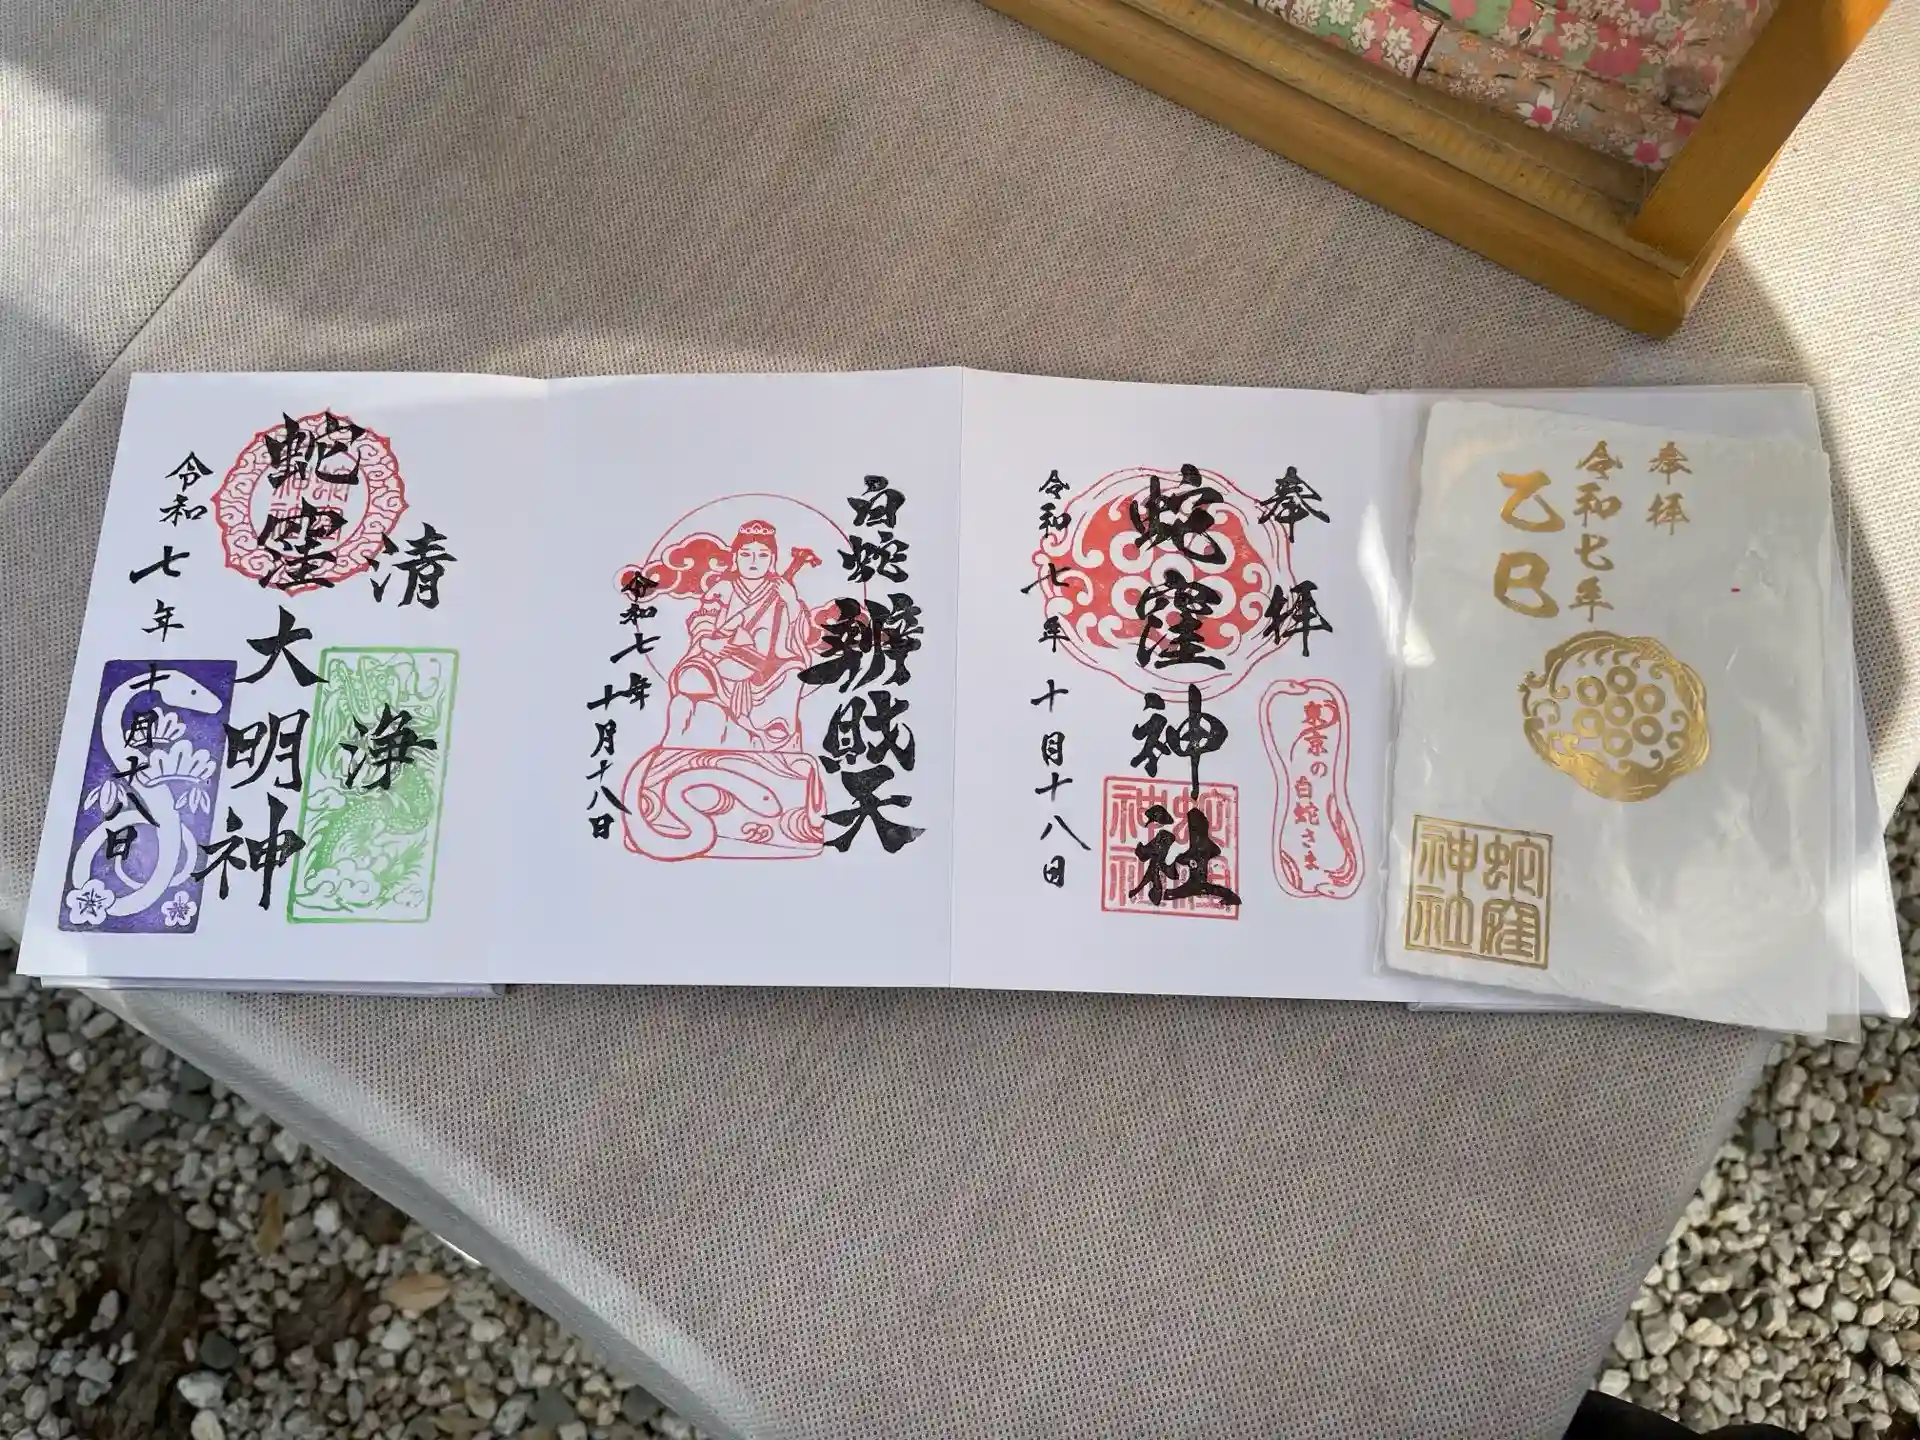 奉拝
令和七年
乙巳
蛇窪
神社
奉拝
東京の白蛇さま
蛇窪神社
蛇窪
神社
令和七年十月十八日
白蛇辨財天
令和七年十月十八日
清浄
蛇窪大明神
令和七年十月十八日